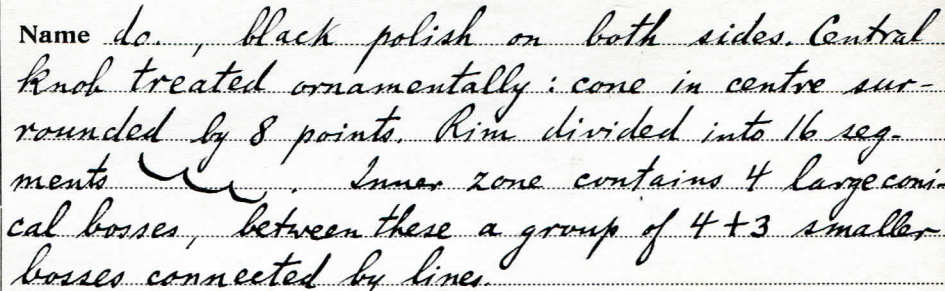 Name do., black polish on both sides. Central
knob treated ornamentally: cone in centre sur-
rounded by 8 points. Rim divided into 16 seg-
ments . Inner zone contains 4 large coni-
cal bosses, between these a group of 4+3 smaller
bosses connected by lines.